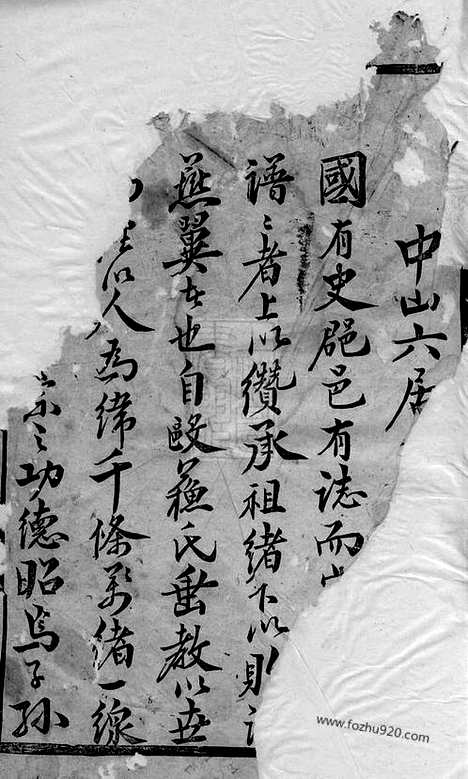 中山六居
國有史郡邑有誌而
譜〻者上以纘承祖緒下以貽
燕翼在也自歐蘓氏垂教以世
以人為緯千條萬緒一線
之功德昭焉子孫
www.fozhu920.com